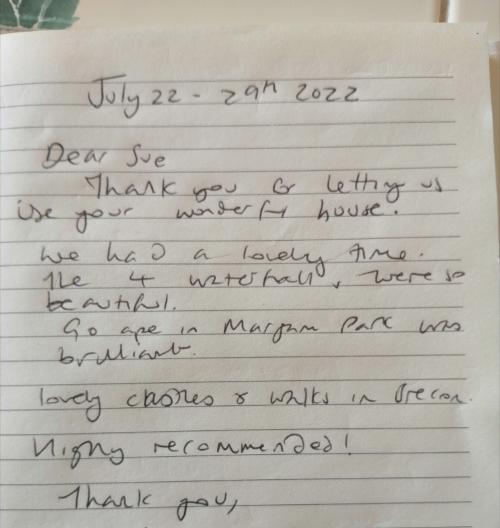 July 22 - 29th 2022
Dear Sue
Thank you for letting us
use your wonderful house.
We had a lovely time.
The 4 waterfalls were so
beautiful.
Go ape in Margam Park was
brilliant.
lovely castles & walks in Brecon.
Highly recommended!
Thank you,